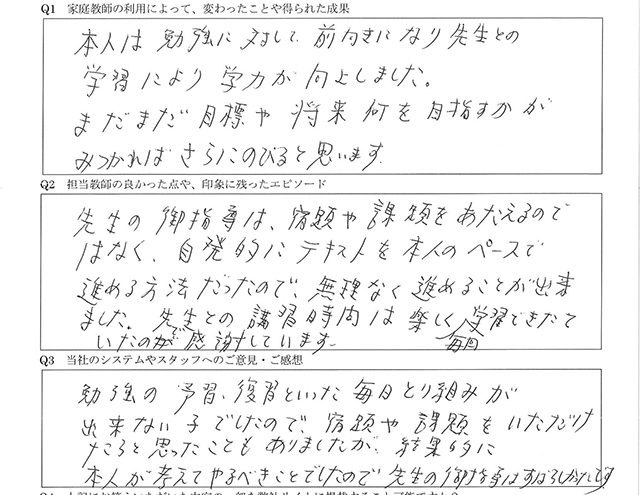 Q1 家庭教師の利用によって、変わったことや得られた成果
本人は勉強に対して前向きになり先生との
学習により学力が向上しました。
まだまだ目標や将来何を目指すかが
みつかればさらにのびると思います。
Q2 担当教師の良かった点や、印象に残ったエピソード
先生の御指導は、宿題や課題をあたえるので
はなく、自発的にテキストを本人のペースで
進める方法だったので、無理なく進めることが出来
ました。先生との講習時間は楽しく学習できたて
毎回
いたので感謝しています。
Q3 当社のシステムやスタッフへのご意見・ご感想
勉強の予習、復習といった毎日とり組みが
出来ない子でしたので、宿題や課題をいただけ
たらと思ったこともありましたが、結果的に
本人が考えてやるべきことでしたので先生の御指導はすばらしかったです